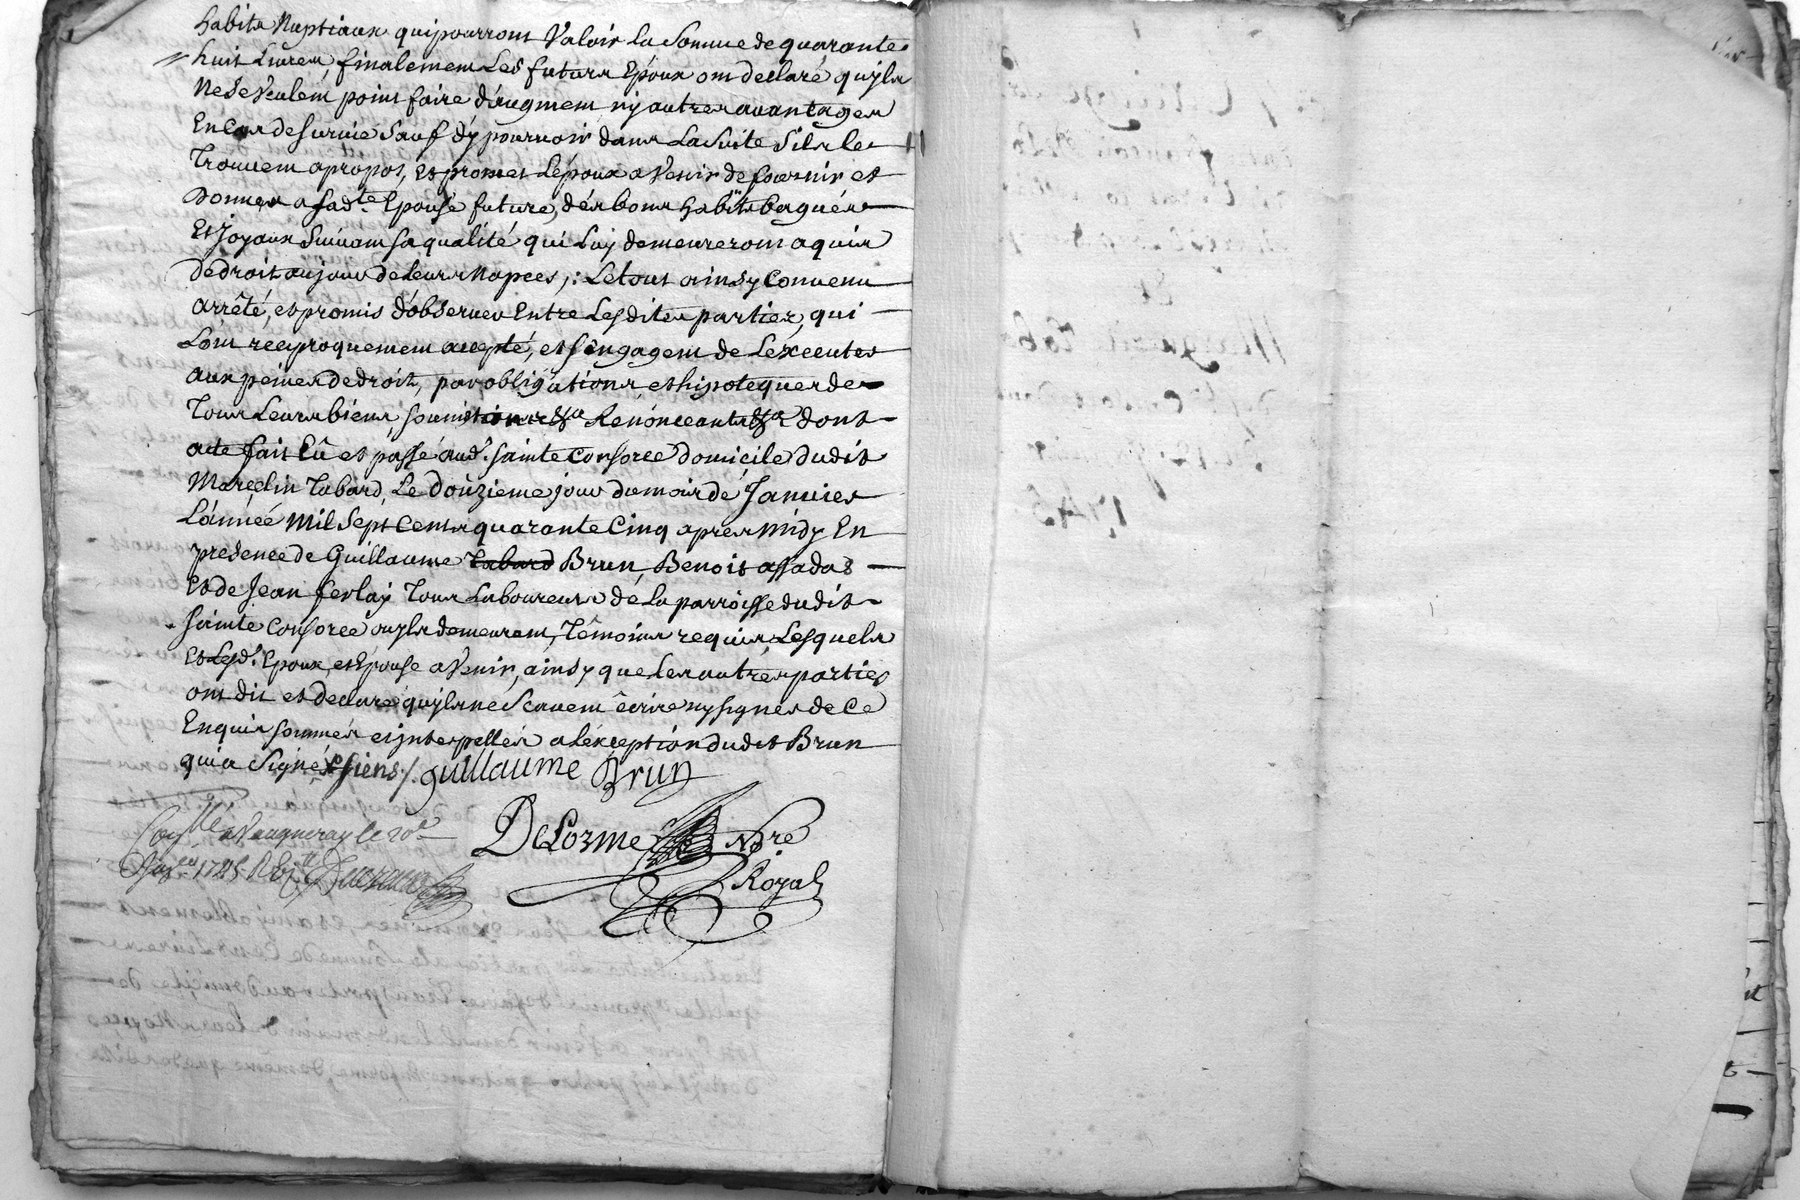 habits Nuptiaux qui pourront Valoir La Somme de quarante
huit Livres, finalement Les futurs Epoux ont declaré qu'jls
Ne Se Veulent point faire d'augment nÿ autres avantages
En Cas de Survie Sauf d'y pourvoir dans La Suite S'ils le
Trouvent apropos, Et promet L'époux a Venir de fournir et
Donner a sadte Epouse future, dés bons habits bagués
Et Joyaux Suivant sa qualité qui Luy demeureront aquis
De droit au jour de Leurs Nopces ;: Le tout ainsy Convenu
arrêté, et promis d'observer Entre Les dites parties, qui
L'ont reciproquement accepté, et s'engagent de L'executer
aux peines de droit, par obligations et hipoteques de
Tous Leurs biens, soumissions &a Renonceants &a dont
acte fait Lû et passé aud. Sainte Consorce Domicile dudit
Marcelin Tabard, Le Douzieme jour du mois de Janvier
L'année Mil Sept Cents quarante Cinq apres midy En
presence de Guillaume Tabard Brun Benoit assada &
Et de Jean ferlay Tous Laboureurs de La parroisse dudit
Sainte Consorce ou jls demeurent, Témoins requis, Lesquels
Et Lesd. Epoux, et Epouse a Venir, ainsy que Les autres parties
ont dit et declaré qu'jls ne Scavent êcrire ny signer de Ce
Enquis sommés et jnterpellés a L'exception dudit Brun
qui a Signé &
guillaume Brun
a Vaugneray le 20e
1745
DeLorme Nore
Royal